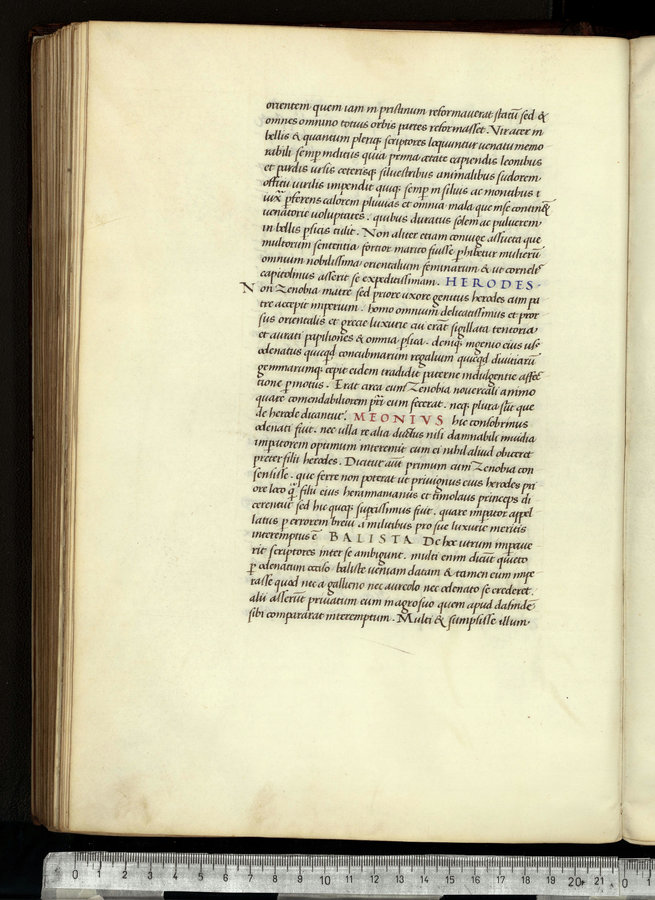 orientem quem iam in pristinum reformaverat statū sed &
omnes omnino totius orbis partes reformasset. Vir acer in
bellis & quantum pleriq; scriptores loquuntur venatu memo
rabili semꝑ inclitus quia prima ætate capiendis leonibus
et pardis ursis ceterisq; silvestribus animalibus sudorem
offitii virilis impendit quiq; semꝑ in silvis ac montibus
ꝑferens calorem pluvias et omnia mala que in se contin&
venatorie voluptates. quibus duratus solem ac pulverem
in bellis ꝑsicis tulit. Non aliter etiam coniuge assueta que
multorum sententia fortior marito fuisse ꝑhibetur mulierū
omnium nobilissima orientalium feminarum & ut corneli⁹
capitolinus asserit se expeditissimam. HERODES.
Non Zenobia matre sed priore uxore genitus herodes cum pa
tre accepit imperium. homo omnium delicatissimus et pror
sus orientalis et grecie luxurie cui erāt sigillata tentoria
et aurati papiliones & omnia ꝑsica. deniq; ingenio eius
odenatus quicqd concubinarum regalium quicqd divitiarū
gemmarumq; cepit eidem tradidit paterne indulgentie affec
tione ꝑmotus. Erat circa eum Zenobia novercali animo
quare comendabiliorem pri eum fecerat. neq; plura sūt que
de herode dicantur. MEONIUS hic consobrinus
odenati fuit. nec ulla re alia ductus nisi damnabili invidia
imꝑatorem optimum interemit cum ei nihil aliud obiceret
preter filii herodes. Dicitur aūt primum cum Zenobia con
sensisse. que ferre non poterat ut privignus eius herodes pri
ore loco filii eius herannianus et timolaus princeps di
cerentur sed hic quoq; spurcissimus fuit. quare imꝑator appel
latus ꝑ errorem brevi a militibus pro sue luxurie meritis
interemptus ē BALISTA De hoc utrum impave
rit scriptores inter se ambigunt. multi enim dicūt quieto
ꝑ odenatum occiso baliste veniam datam & tamen eum impe
rasse quod nec a gallieno nec aureolo nec odenato se crederet.
alii asserūt privatum eum in agro suo quem apud dafnide
sibi compararat interemptum. Multi & sumpsisse illum